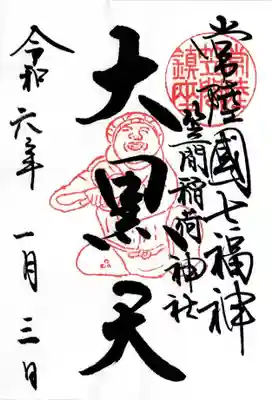 常陸國七福神
笠間稲荷神社
大黒天
令和六年 一月 三日